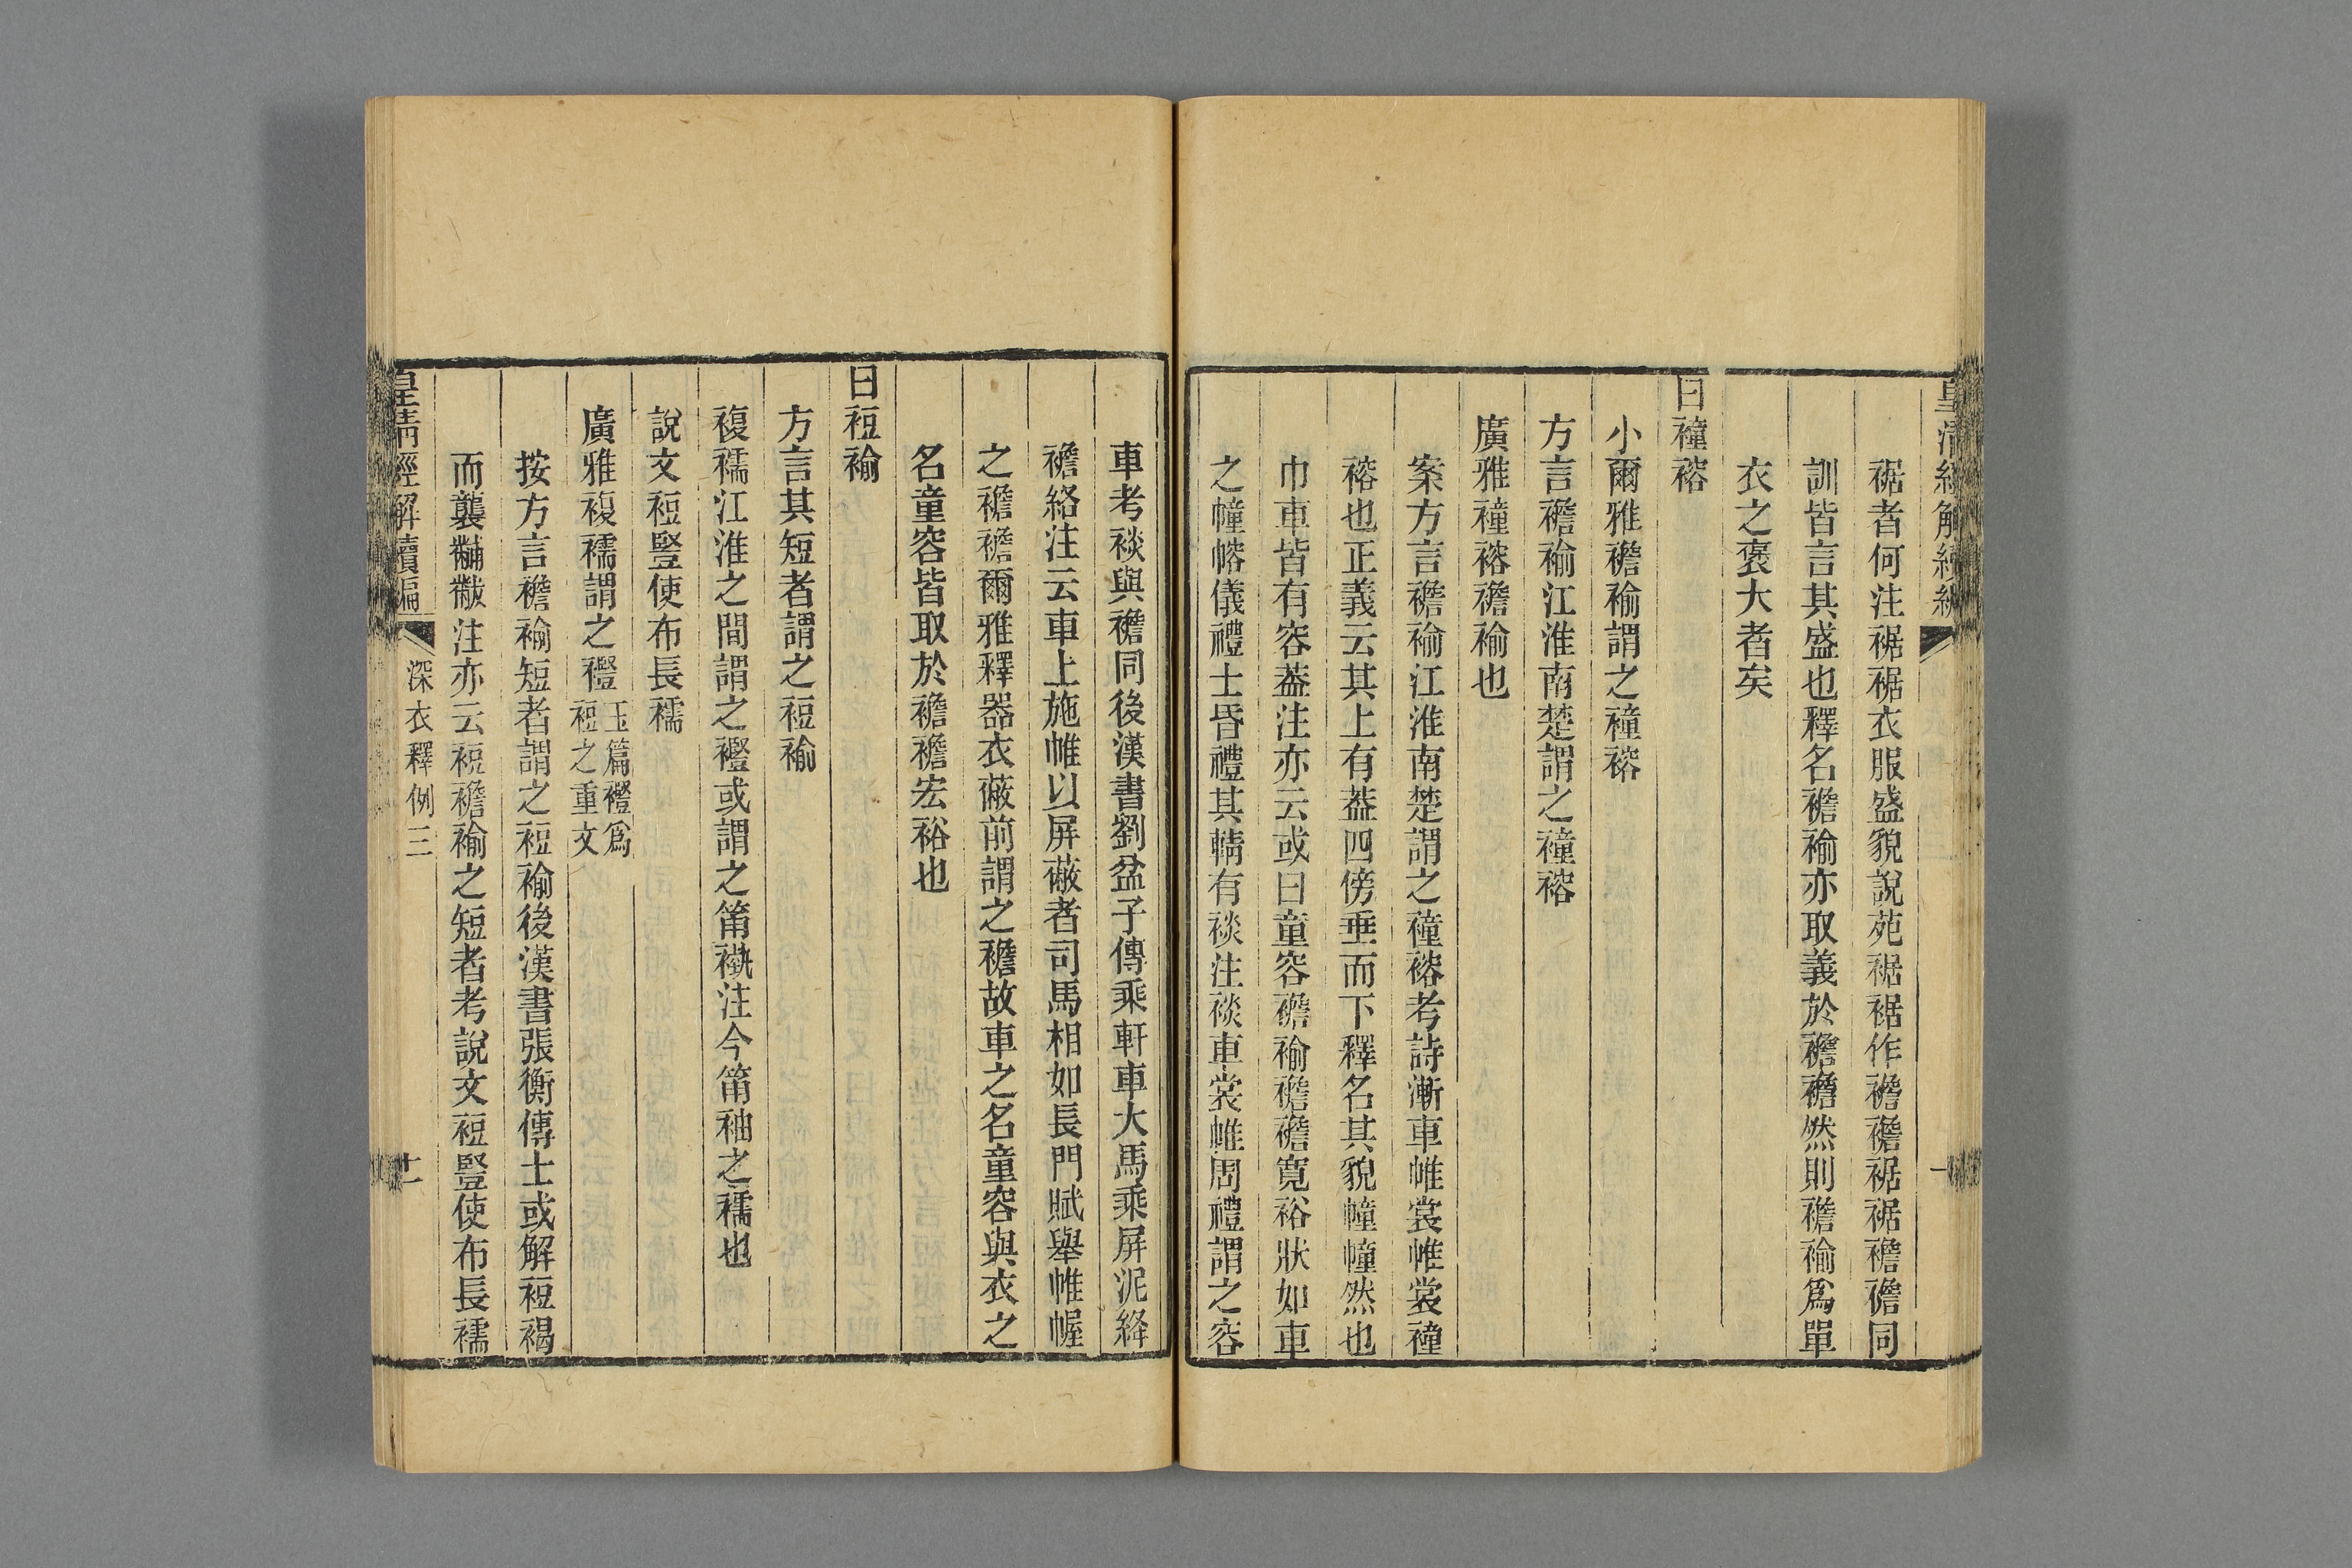 皇清經解續編
裾者何注裾裾衣服盛貌說苑裾裾作襜襜裾裾襜襜同
訓皆言其盛也釋名襜褕亦取義於襜襜然則襜褕爲單
衣之褒大者矣
曰䙱褣
小爾雅襜褕謂之䙱褣
方言襜褕江淮南楚謂之䙱褣
廣雅䙱褣襜褕也
案方言襜褕江淮南楚謂之䙱褣考詩漸車帷裳帷裳䙱
褣也正義云其上有葢四傍垂而下釋名其貌幢幢然也
巾車皆有容葢注亦云或曰童容襜褕襜襜寬裕狀如車
之幢幍儀禮士昏禮其輤有裧注裧車裳帷周禮謂之容
車考裧與襜同後漢書劉盆子傳乘軒車大馬乘屏泥絳
襜絡注云車上施帷以屏蔽者司馬相如長門賦舉帷幄
之襜襜爾雅釋器衣蔽前謂之襜故車之名童容與衣之
名童容皆取於襜襜宏裕也
曰裋褕
方言其短者謂之裋褕
複襦江淮之間謂之䙞或謂之筩褹注今筩袖之襦也
說文裋豎使布長襦
廣雅複襦謂之䙞玉篇䙞爲裋之重文
按方言襜褕短者謂之裋褕後漢書張衡傳士或解裋褐
而襲黼黻注亦云裋襜褕之短者考說文裋豎使布長襦
皇清經解續編 深衣釋例三 十一